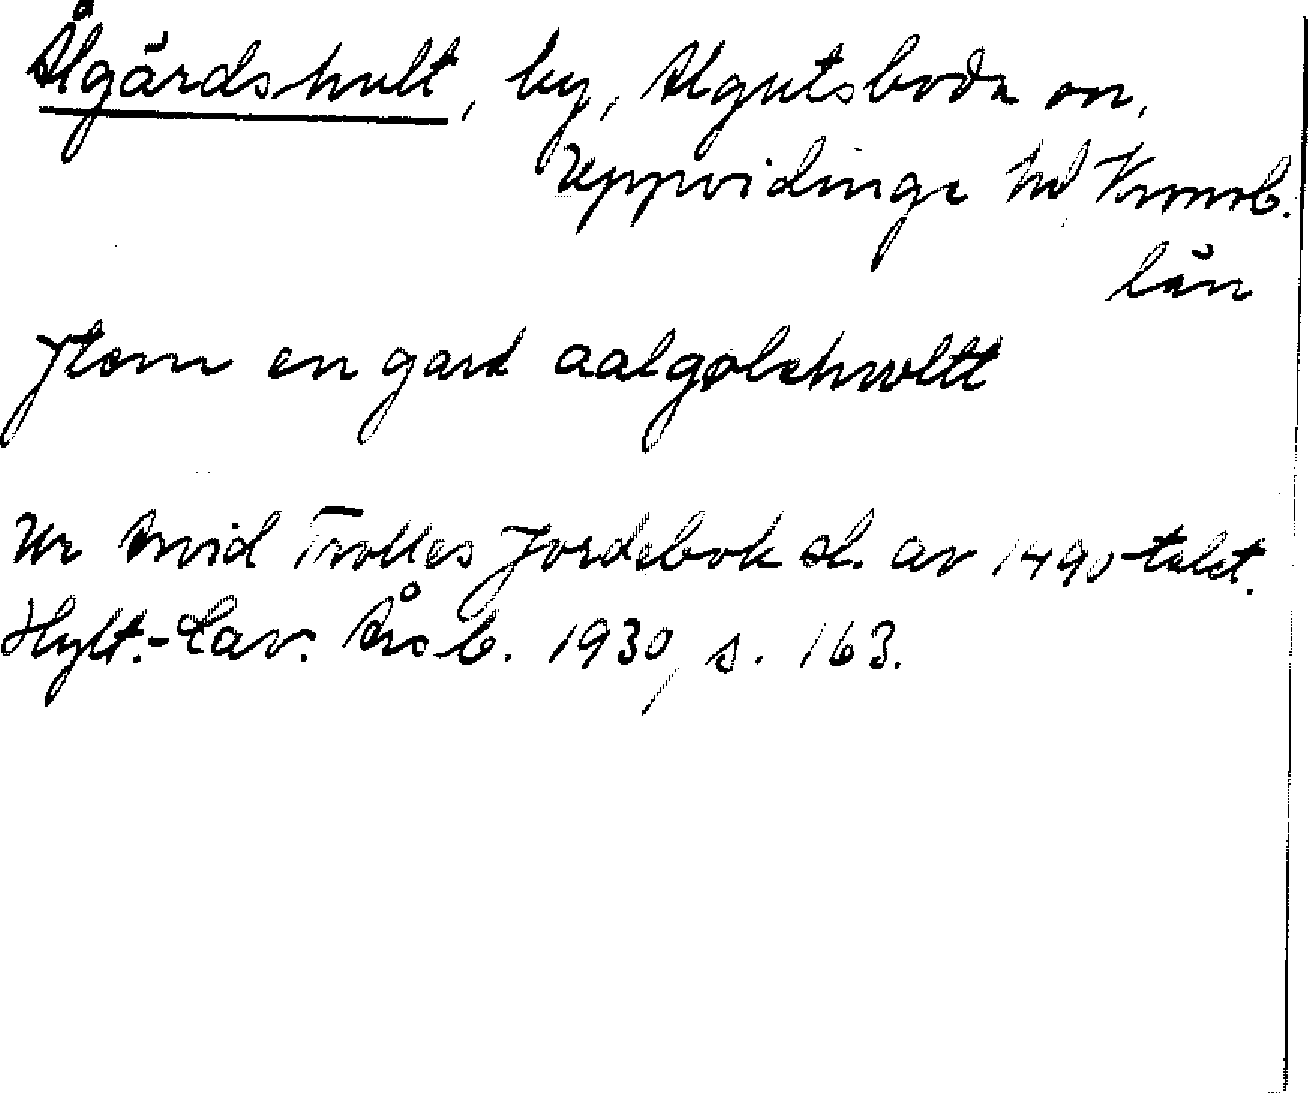 Ålgärdshult, by, Algutsboda sn,
Uppvidinge hd, Kronob.
län
Jtem en gard aalgølehwltt
Ur Arvid Trolles Jordebok sl. av 1490-talet.
Hylt.-Cav. Årsb. 1930, s. 163.